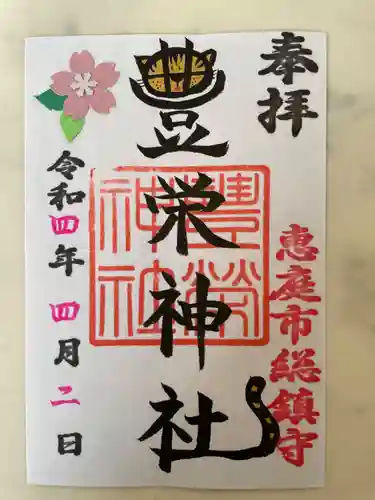 奉拝
恵庭市総鎮守
豊栄神社
豊榮神社
令和四年四月二日